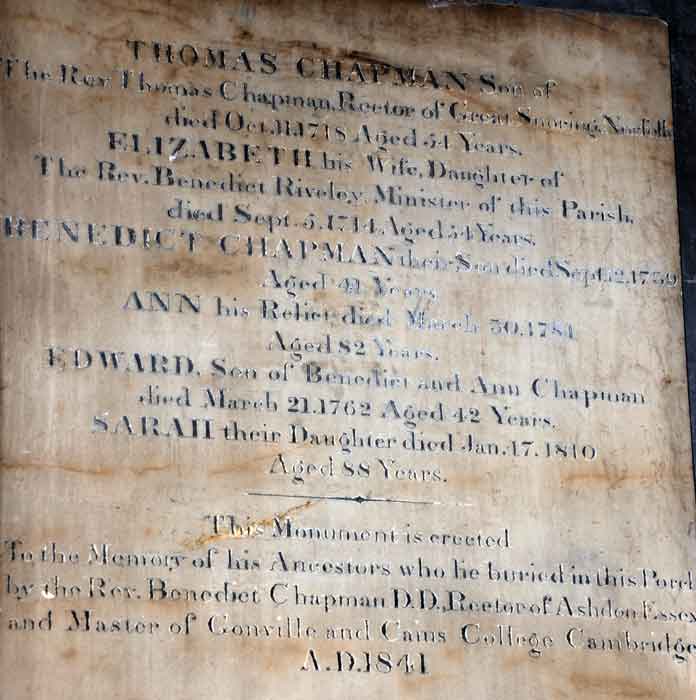 THOMAS CHAPMAN Son of
The Rev. Thomas Chapman, Rector of Great Snoring, Norfolk
died Oct. 11. 1718 Aged 54 Years.
ELIZABETH his Wife, Daughter of
The Rev. Benedict Riveley, Minister of this Parish,
died Sept. 5. 1714 Aged 54 Years.
BENEDICT CHAPMAN their Son died Sept. 12. 1739
Aged 41 Years
ANN his Relict died March 30. 1784
Aged 82 Years.
EDWARD, Son of Benedict and Ann Chapman
died March 21. 1762 Aged 42 Years.
SARAH their Daughter died Jan. 17. 1810
Aged 88 Years.
This Monument is erected
To the Memory of his Ancestors who lie buried in this Porch
by the Rev. Benedict Chapman D.D., Rector of Ashdon Essex
and Master of Gonville and Caius College Cambridge
A.D. 1841